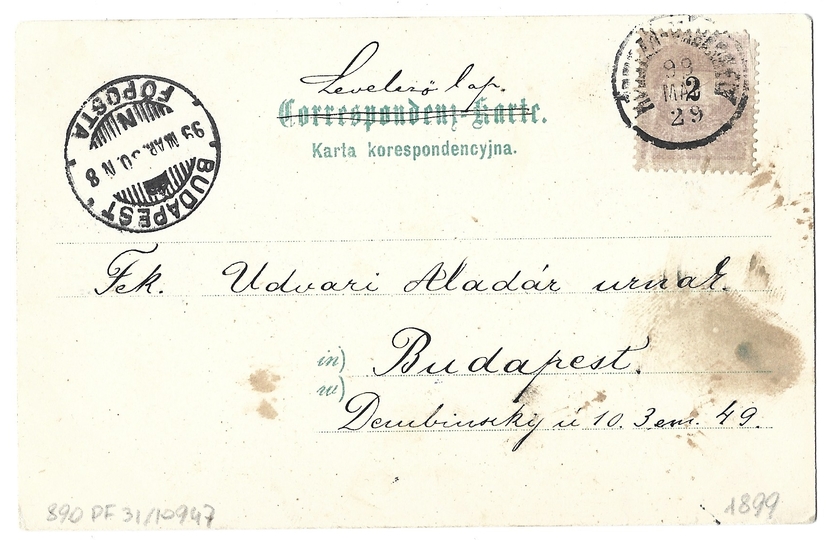 Levelező lap.
Correspondenz-Karte.
Karta korespondencyjna.
BUDAPEST
FŐPOSTA
99 MÁR. 30 N 8
99
MÁR
29
2
Fek. Udvari Aladár urnak.
in)
Budapest.
w)
Dembinszky ú 10. 3 em. 49.
890 PF 31/10947
1899